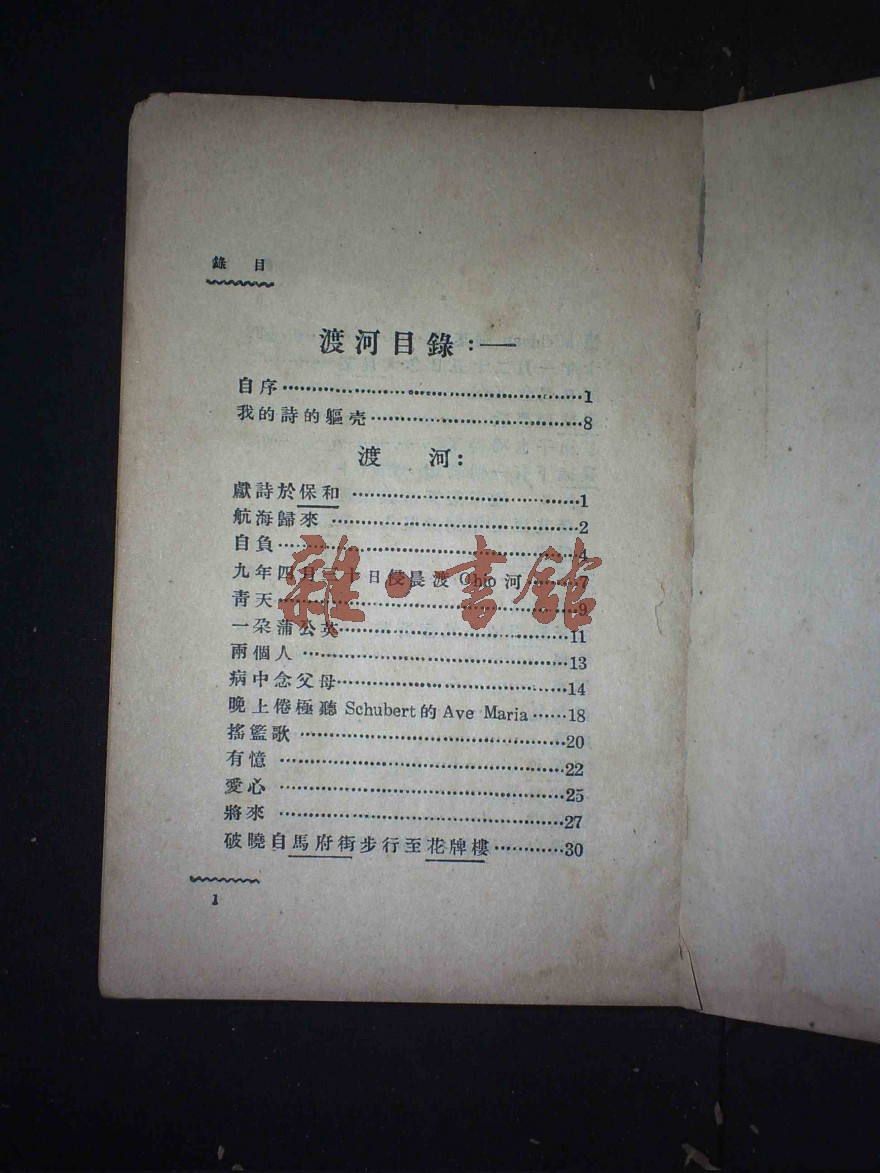 錄 目
渡河目錄:—
自序……1
我的詩的軀壳……8
渡 河:
獻詩於保和……1
航海歸來……2
自負……4
九年四月三十日侵晨渡 Ohio 河……7
靑天……9
一朶蒲公英……11
兩個人……13
病中念父母……14
晚上倦極聽 Schubert的 Ave Maria……18
搖籃歌……20
有憶……22
愛心……25
將來……27
破曉自馬府街步行至花牌樓……30
1
雜·書館